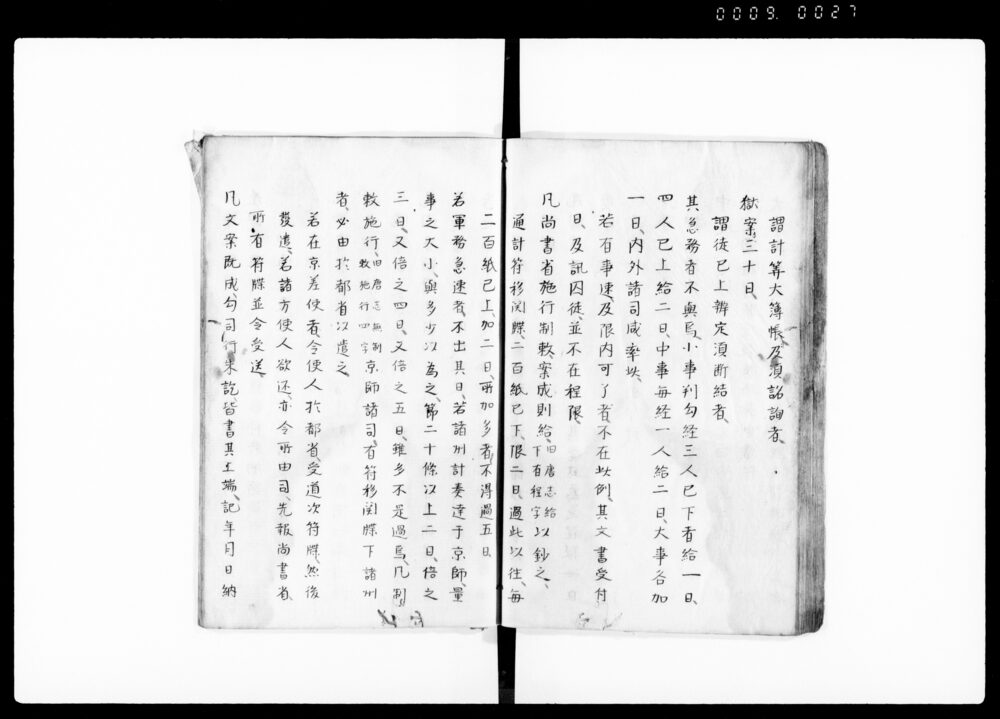 0009. 0027
謂計筭大簿帳及須諮詢者、
獄案三十日、
謂徒已上辨定須断結者、
其急務者不與焉、小事判勾経三人已下者給一日、
四人已上給二日、中事毎経一人給二日、大事各加
一日、内外諸司咸率此、
若有事速及限内可了者、不在此例、其文書受付
日、及訊囚徒、並不在程限、
凡尚書省施行制敕、案成則給、旧唐志給下有程字以鈔之、
通計符移関牒、二百紙已下、限二日、過此以往、毎
二百紙已上、加二日、所加多者、不得過五日
若軍務急速者、不出其日、若諸州計奏達于京師、量
事之大小、與多少以為之節、二十條以上二日、倍之
三日、又倍之四日、又倍之五日、雖多不是過焉、凡制
敕施行、旧唐志無制敕施行四字京師諸司、有符移関牒下諸州
者、必由於都省以遣之、
若在京差使者、令使人於都省受道次符牒、然後
發遣、若諸方使人欲还、亦令所由司、先報尚書省、
所有符牒並令受送、
凡文案既成、勾司行朱訖、皆書其上端、記年月日納